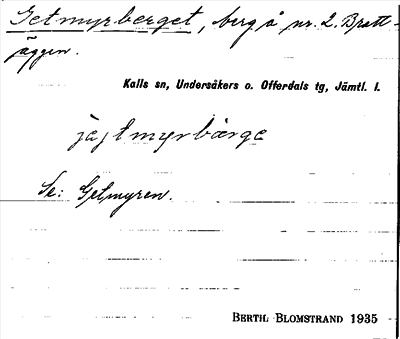 Getmyrberget, berg å nr. 2. Bratt-
äggen.
Kalls sn, Undersåkers o. Offerdals tg, Jämtl. l.
jäjtmyrbärge
Se: Getmyren.
BERTH. BLOMSTRAND 1935